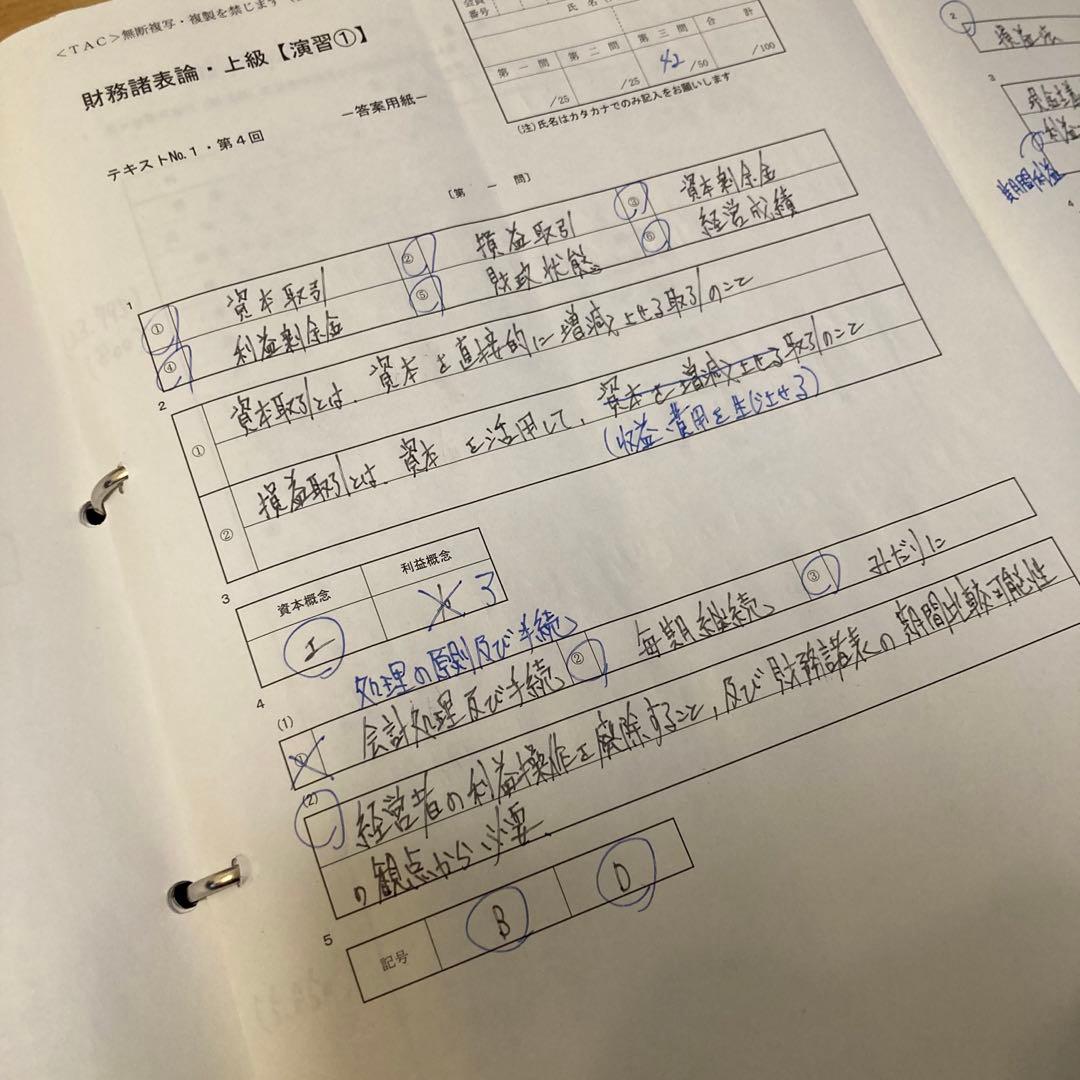 <TAC>無断複写・複製を禁じます
財務諸表論・上級【演習①】
－答案用紙－
テキストNo.1・第4回
番号
氏名
第一問 第二問 第三問 合計
/25 /25 42/50 /100
(注)氏名はカタカナでのみ記入をお願いします
〔第一問〕
1
① 資本取引 ② 損益取引 ③ 資本剰余金
④ 利益剰余金 ⑤ 財政状態 ⑥ 経営成績
2
① 資本取引とは、資本を直接的に増減させる取引のこと
② 損益取引とは、資本を活用して、資本を増減させる取引のこと
(収益・費用を生じさせる)
3
資本概念 利益概念
エ 3
4
処理の原則及び手続
(1)
① 会計処理及び手続 ② 毎期継続 ③ みだりに
(2)
経営者の利益操作を廃除すること、及び財務諸表の期間比較可能性
の観点から必要。
5
記号 B D
②
3
利益
期間利益
4